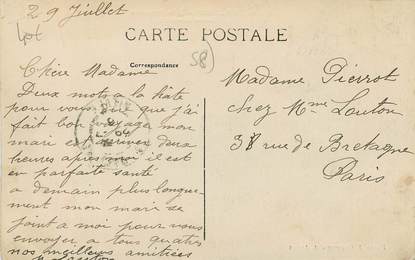 29 Juillet
Lot
CARTE POSTALE
Correspondance
58)
Chère Madame
Deux mots a la hâte
pour vous dire que j'ai
fait bon voyage mon
mari est arriver deux
heures après moi il est
en parfaite santé
a demain plus longue-
ment mon mari se
joint a moi pour vous
envoyer a tous quatre
nos meilleurs amitiées
Madame Pierrot
chez Mme Louton
38 rue de Bretagne
Paris